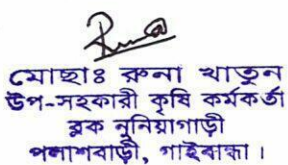 মোছাঃ রুনা খাতুন
উপ-সহকারী কৃষি কর্মকর্তা
ব্লক নুনিয়াগাড়ী
পলাশবাড়ী, গাইবান্ধা।